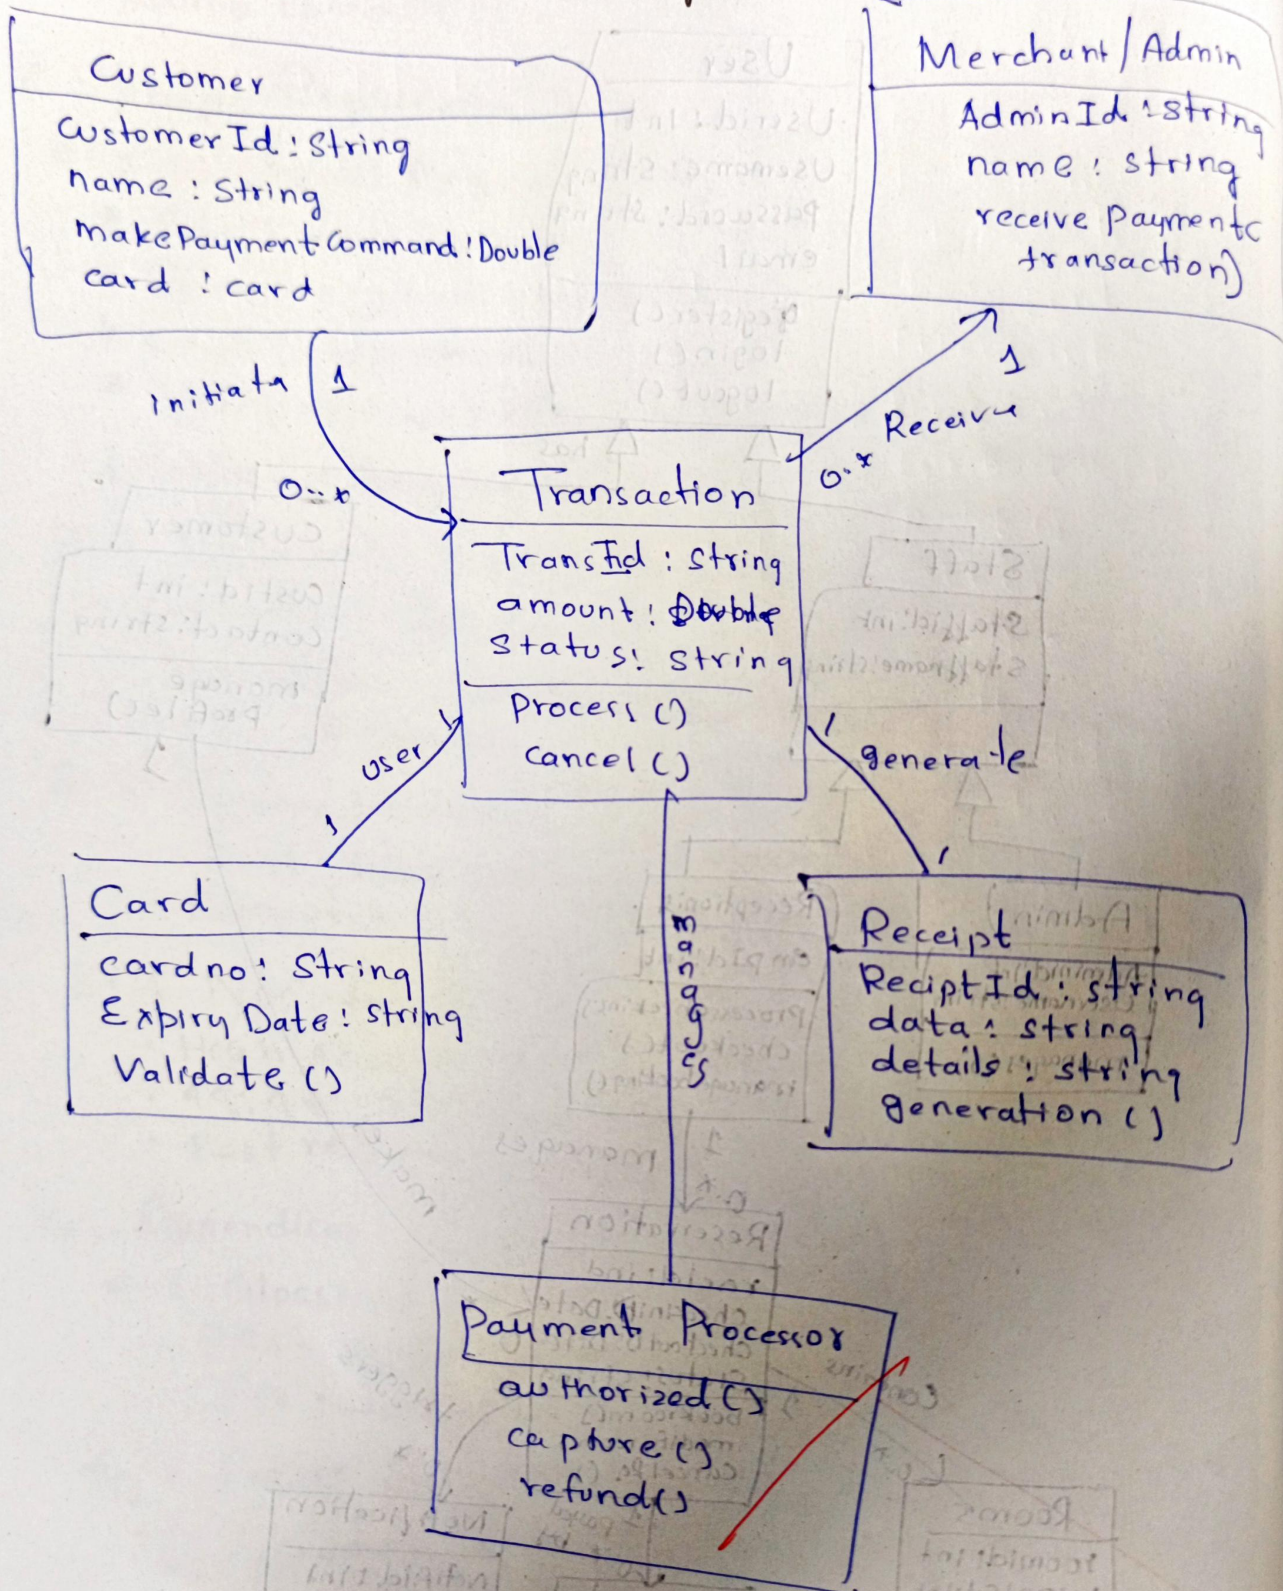 Customer
CustomerId : String
name : String
makePaymentCommand : Double
card : card
Merchant / Admin
AdminId : String
name : string
receive Payment(
transaction)
initiata
1
0..*
1
Receive
0..*
Transaction
TransId : String
amount : Double
Status : string
Process ()
Cancel ()
user
1
1
generate
1
1
Card
cardno : String
Expiry Date : string
Validate ()
manages
Receipt
ReciptId : string
data : string
details : string
generation ()
Payment Processor
authorized ()
capture ()
refund ()